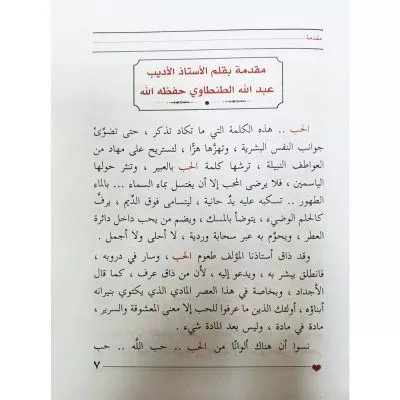 مقدمة
مقدمة بقلم الأستاذ الأديب
عبد الله الطنطاوي حفظه الله
الحب .. هذه الكلمة التي ما تكاد تذكر ، حتى تضوّئ
جوانب النفس البشرية ، وتهزّها هزًّا ، لتستريح على مهاد من
العواطف النبيلة ، ترشها كلمة الحب بالعبير ، وتنثر حولها
الياسمين ، فلا يرضى المحب إلا أن يغتسل بماء السماء ... بالماء
الطهور .. تسكبه عليه يدٌ حانية ، ليتسامى فوق الدِّيم ، يرفّ
كالحلم الوضيء ، يتوضأ بالمسك ، ويضم من يحب داخل دائرة
العطر ، ويحوِّم به عبر سحابة وردية ، لا أحلى ولا أجمل .
وقد ذاق أستاذنا المؤلف طعوم الحب ، وسار في دروبه ،
فانطلق يبشر به ، ويدعو إليه ، لأن من ذاق عرف ، كما قال
الأجداد ، وبخاصة في هذا العصر المادي الذي يكتوي بنيرانه
أبناؤه ، أولئك الذين ما عرفوا للحب إلا معنى المعشوقة والسرير ،
مادة في مادة ، وليس بعد المادة شيء .
نسوا أن هناك ألوانًا من الحب .. حب اللَّه .. حب
٧